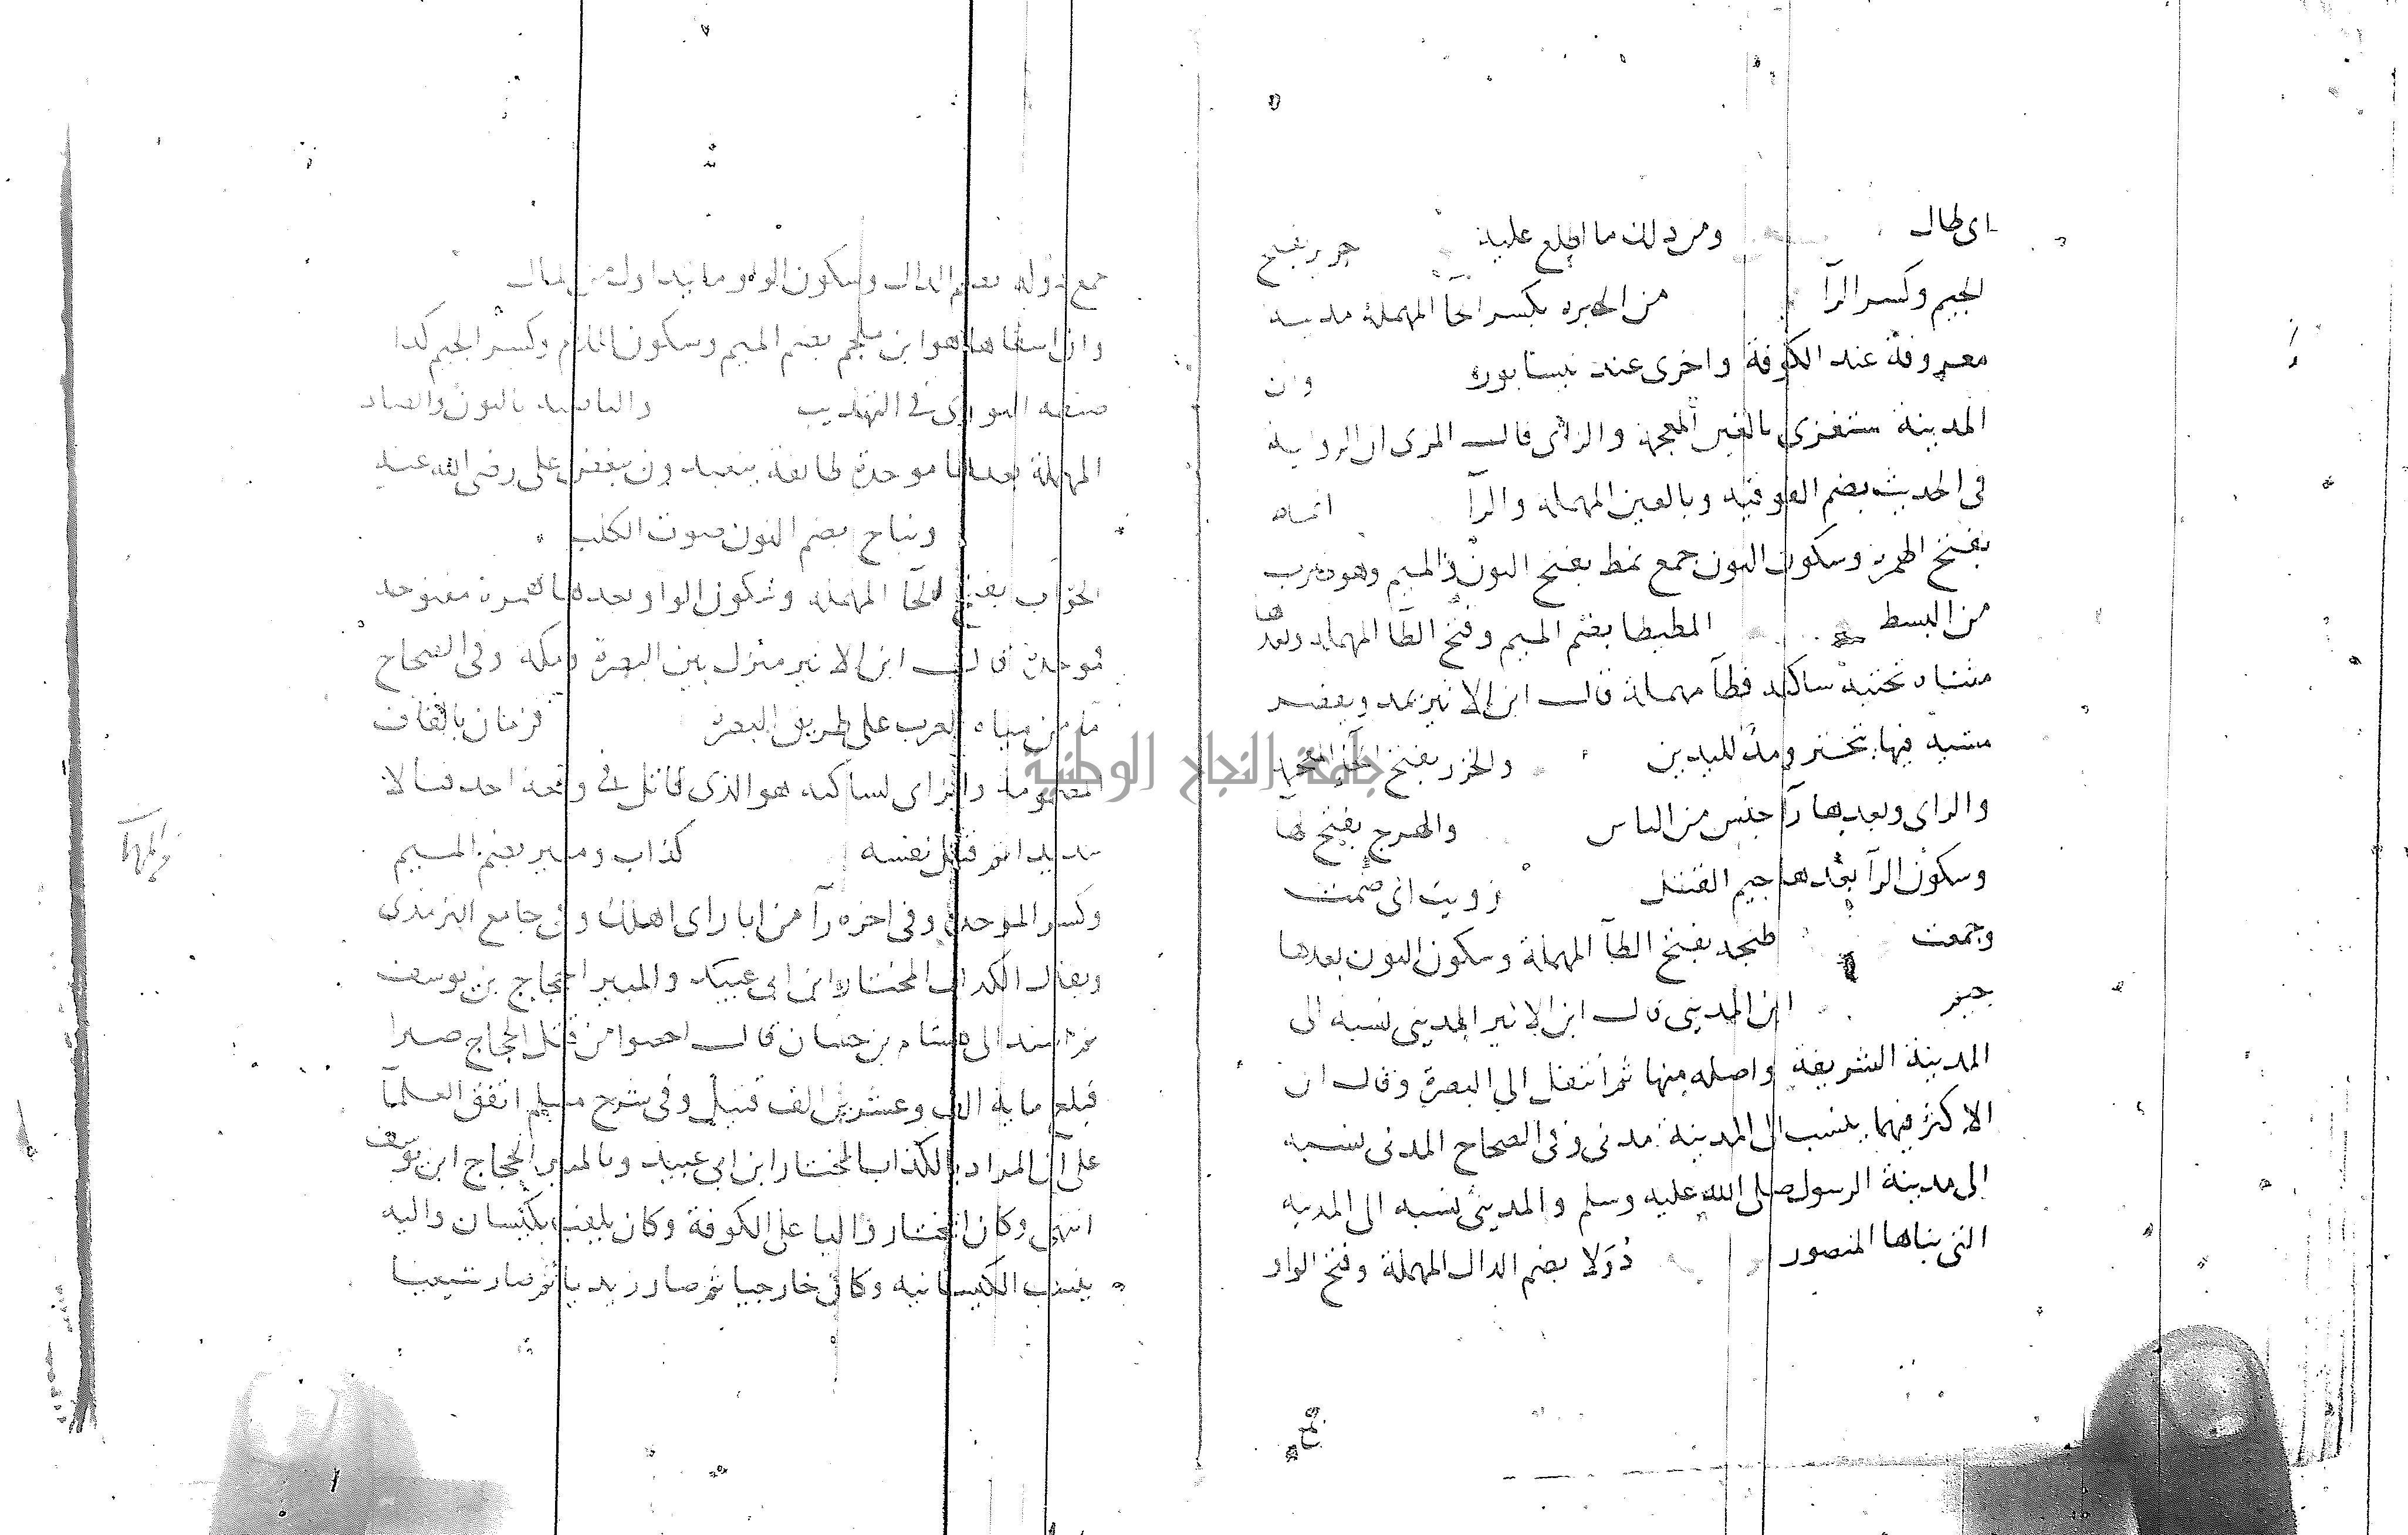 اى طال ومن ذلك ما اطلع عليه جرير بفتح
الجيم وكسر الرآ من الحيره بكسر الحآ المهملة مدينة
معروفة عند الكوفة واخرى عند نيسابوره وان
المدينة ستغزى بالغين المعجمة والزاى قال المزى ان الرواية
فى الحديث بضم الفوقيه وبالعين المهملة والرآ انماط
بفتح الهمزة وسكون النون جمع نمط بفتح النون والميم وهو ضرب
من البسط المطيطا بضم الميم وفتح الطآ المهملة وبعدها
مثناه تحتيه ساكنه فطآ مهملة قال ابن الاثير يمد ويقصر
مشيه فيها تبختر ومد لليدين والخزر بفتح الخآ المعجمة
والزاى وبعدها رآ جنس من الناس والهرج بفتح الهآ
وسكون الرآ بعدها جيم القتل زويت اى ضمت
وجمعت طنجه بفتح الطآ المهملة وسكون النون بعدها
جيم ابن المدينى قال ابن الاثير المدينى نسبه الى
المدينة الشريفة واصله منها ثم انتقل الى البصرة وقال ان
الاكثر فيما ينسب الى المدينة مدنى وفى الصحاح المدنى نسبه
الى مدينة الرسول صلى الله عليه وسلم والمدينى نسبه الى المدينه
التى بناها المنصور دُوَلا بضم الدال المهملة وفتح الواو
جمع دوله بضم الدال وسكون الواو ما يتداول من المال
وان اشقاها هو ابن ملجم بضم الميم وسكون اللام وكسر الجيم كذا
ضبطه النووى فى التهذيب والناصبه بالنون والصاد
المهملة بعدها موحدة طايفة يتعبدون ببغض على رضى الله عنه
ونباح بضم النون صوت الكلب
الحوأب بفتح الحآ المهملة وسكون الواو بعدها همزه مفتوحه
فموحدة قال ابن الاثير منزل بين البصرة ومكة وفى الصحاح
مآ من مياه العرب على طريق البصرة قزمان بالقاف
المضمومة والزاى الساكنه هو الذى قاتل فى وقعة احد قتالا
شديدا ثم قتل نفسه كذاب ومبير بضم الميم
وكسر الموحدة وفى اخره رآ من ابار اى اهلك وفى جامع الترمذى
ويقال الكذاب المختار ابن ابى عبيد والمبير الحجاج بن يوسف
ثم اسند الى هشام بن حسان قال احصوا من قتل الحجاج صبرا
فبلغ ماية الف وعشرين الف قتيل وفى شرح مسلم اتفق العلمآ
على ان المراد بالكذاب المختار ابن ابى عبيد وبالمبير الحجاج ابن يوسف
انتهى وكان المختار واليا على الكوفة وكان يلقب بكيسان واليه
ينسب الكيسانيه وكان خارجيا ثم صار زيديا ثم صار شيعيا
جامعة النجاح الوطنية